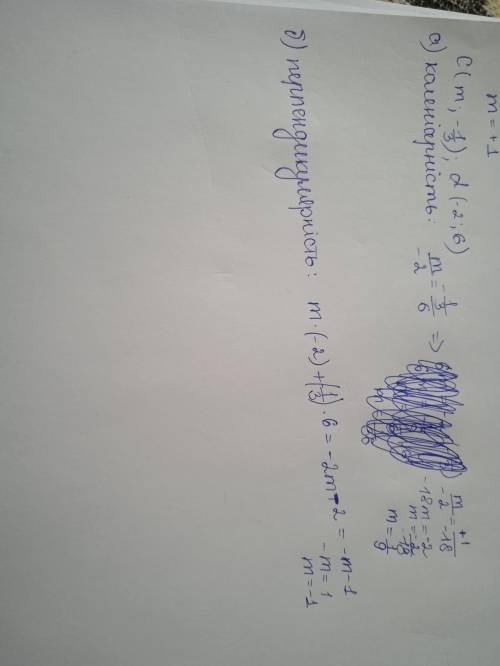 m = +1
C(m; -1/3); d(-2; 6)
а) коленіарність: m/-2 = -1/3/6 =>
m/-2 = +1/-18
-18m = -2
m = -2/-18
m = 1/9
б) перпендикулярність: m·(-2)+(-1/3)·6 = -2m-2 = -m-1
-m = 1
m = -1